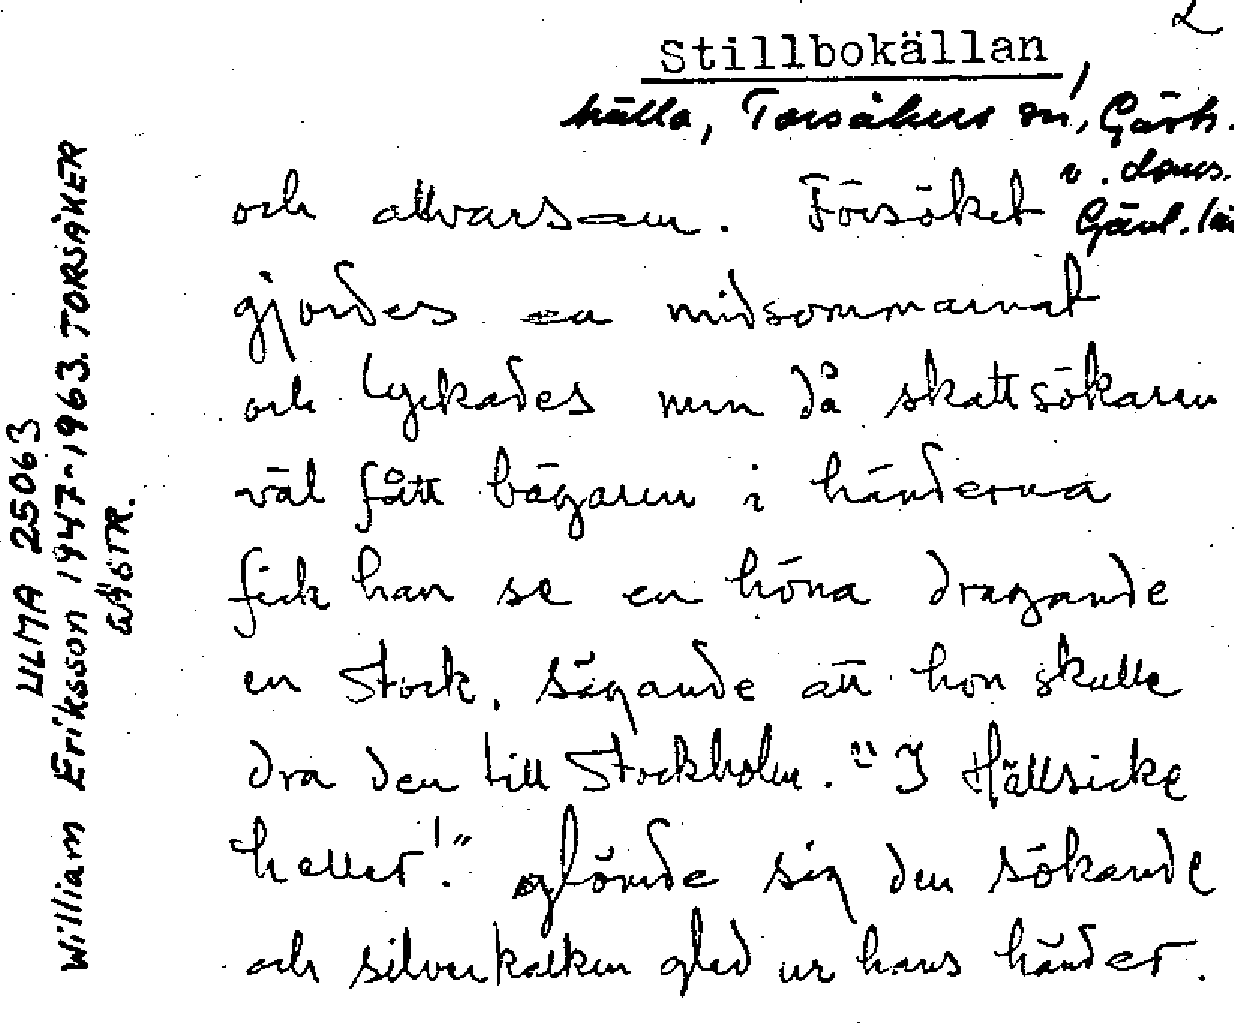 2
Stillbokällan,
källa, Torsåkers sn, Gästr.
v. doms.
Gävl. län
och allvarsam. Försöket
gjordes en midsommarnat
och lyckades men då skattsökaren
väl fått bägaren i händerna
fick han se en höna dragande
en stock, sägande att hon skulle
dra den till Stockholm. "I Hällsicke
heller!" glömde sig den sökande
och silverkalken gled ur hans händer.
ULMA 25063
William Eriksson 1947-1963. TORSÅKER
GÄSTR.